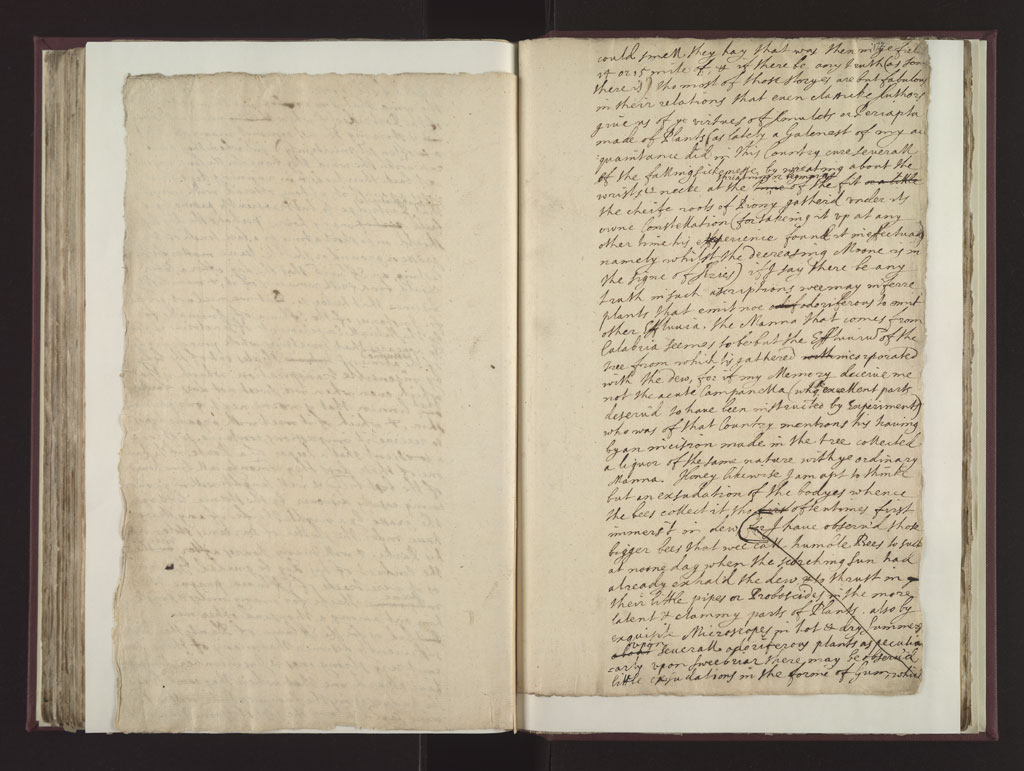 could smell they hay that was then
14 or 15 mile of & if there be any truth (as some
there is) tho most of those storyes are but fabulous
in their relations that even classicke Authors
give us of ye virtues of Amulets or Periapta
made of Plants (as lately a Galenest of my ac
quaintance did in this Country cure severall
of the falling sickenesse by wreathing about the
wrists & necke at the time of the fit or a little
the cheife roots of Piony gather'd under its
owne Constellation (for takeing it up at any
other time his experience found it ineffectuall)
namely whilst the decreasing Moone is in
the signe of Aries) if I say there be any
truth in such ascriptions wee may inferre
plants that emit noe odoriferous to emit
other Effluvia. the Manna that comes from
Calabria seemes to be but the Effluviu of the
tree from which tis gathered with incorporated
with the dew, for if my Memory deceive me
not the acute Campanella (whose excellent parts
deserv'd to have been instructed by Experiments)
who was of that Country mentions his having
by an incision made in the tree collected
a liquor of the same nature with ye ordinary
Manna. Honey likewise I am apt to thinke
but an exsudation of the bodyes whence
the bees collect it tho oftentimes first
immers't in dew for I have observ'd those
bigger bees that wee call humble Bees to suck
at noone day when the scorching sun had
already exhal'd the dew & to thrust in
their little pipes or Proboscides in the more
latent & clammy parts of Plants. also by
exquisite Microscopes in hot & dry Summers
upon
about severall odoriferous plants as peculia
rarly upon sweebriar there may be observ'd
little exsudations in the forme of Gum which